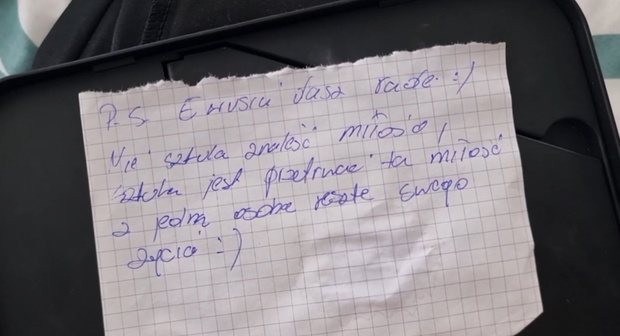 P.S. Ewusia dasz radę :)
Nie sztuka znaleść miłość,
sztuka jest przetrwać ta miłość
z jedną osobą resztę swego
życia :)